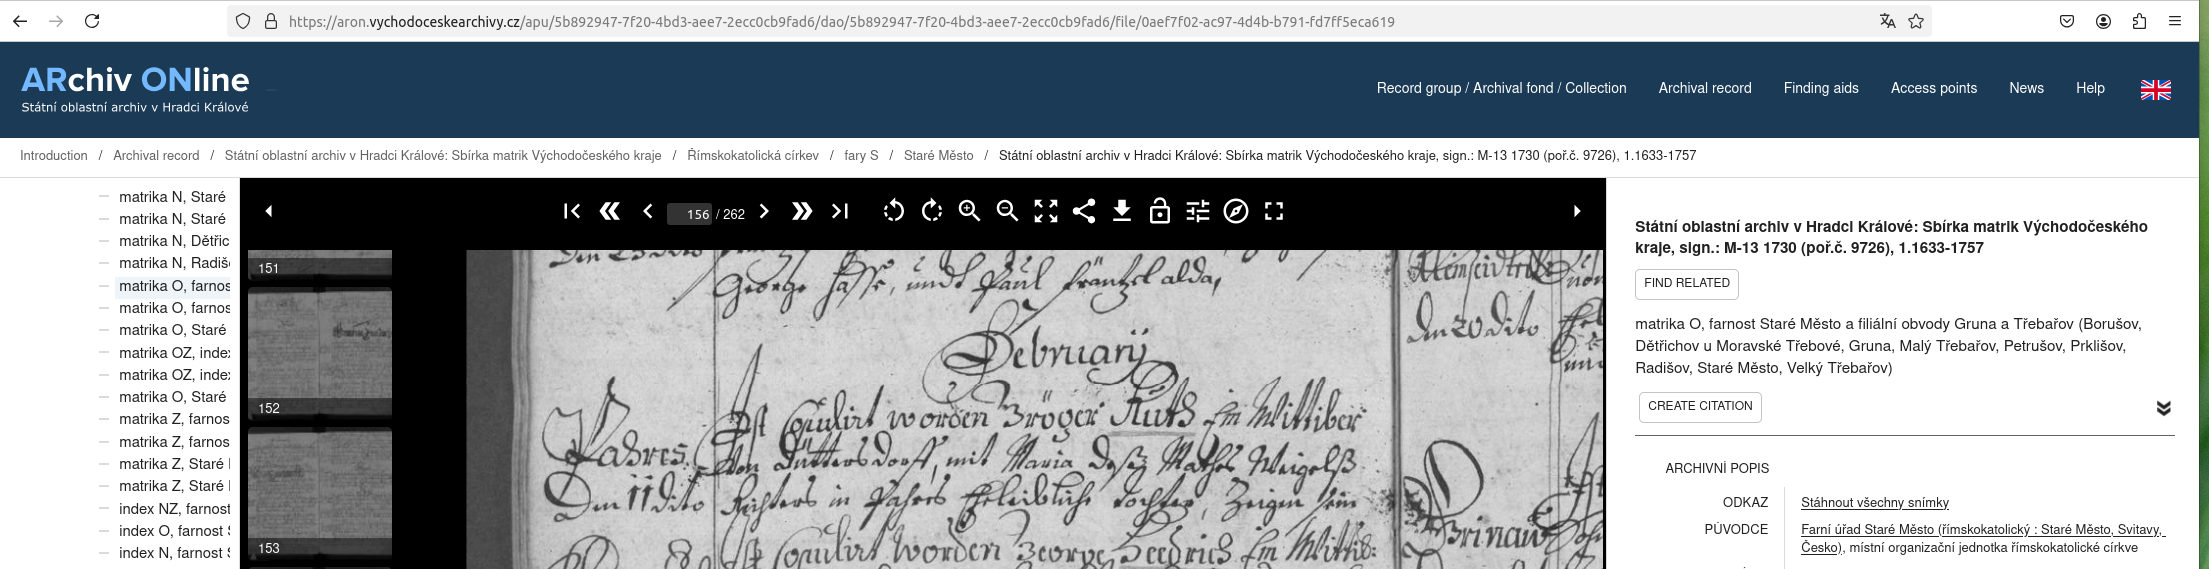 https://aron.vychodoceskearchivy.cz/apu/5b892947-7f20-4bd3-aee7-2ecc0cb9fad6/dao/5b892947-7f20-4bd3-aee7-2ecc0cb9fad6/file/0aef7f02-ac97-4d4b-b791-fd7ff5eca619
ARchiv ONline
Státní oblastní archiv v Hradci Králové
Record group / Archival fond / Collection
Archival record
Finding aids
Access points
News
Help
Introduction / Archival record / Státní oblastní archiv v Hradci Králové: Sbírka matrik Východočeského kraje / Římskokatolická církev / fary S / Staré Město / Státní oblastní archiv v Hradci Králové: Sbírka matrik Východočeského kraje, sign.: M-13 1730 (poř.č. 9726), 1.1633-1757
matrika N, Staré
matrika N, Staré
matrika N, Dětřic
matrika N, Radiš
matrika O, farnos
matrika O, farnos
matrika O, Staré
matrika OZ, index
matrika OZ, index
matrika O, Staré
matrika Z, farnos
matrika Z, farnos
matrika Z, Staré
matrika Z, Staré
index NZ, farnost
index O, farnost
index N, farnost
156 / 262
151
152
153
George Hasse, undt Paul Fräntzel alda,
February
Ist Copulirt worden Kuth Ein Wittiber
Pahres Von Düttersdorff, mit Maria deß Mathes Weigelß
Den 11 dito Richters in Pahres Eheleibliche tochter, Zeigen sein
Ist Copulirt worden George
den 20 dito
Státní oblastní archiv v Hradci Králové: Sbírka matrik Východočeského
kraje, sign.: M-13 1730 (poř.č. 9726), 1.1633-1757
FIND RELATED
matrika O, farnost Staré Město a filiální obvody Gruna a Třebařov (Borušov,
Dětřichov u Moravské Třebové, Gruna, Malý Třebařov, Petrušov, Prklišov,
Radišov, Staré Město, Velký Třebařov)
CREATE CITATION
ARCHIVNÍ POPIS
ODKAZ Stáhnout všechny snímky
PŮVODCE Farní úřad Staré Město (římskokatolický : Staré Město, Svitavy,
Česko), místní organizační jednotka římskokatolické církve